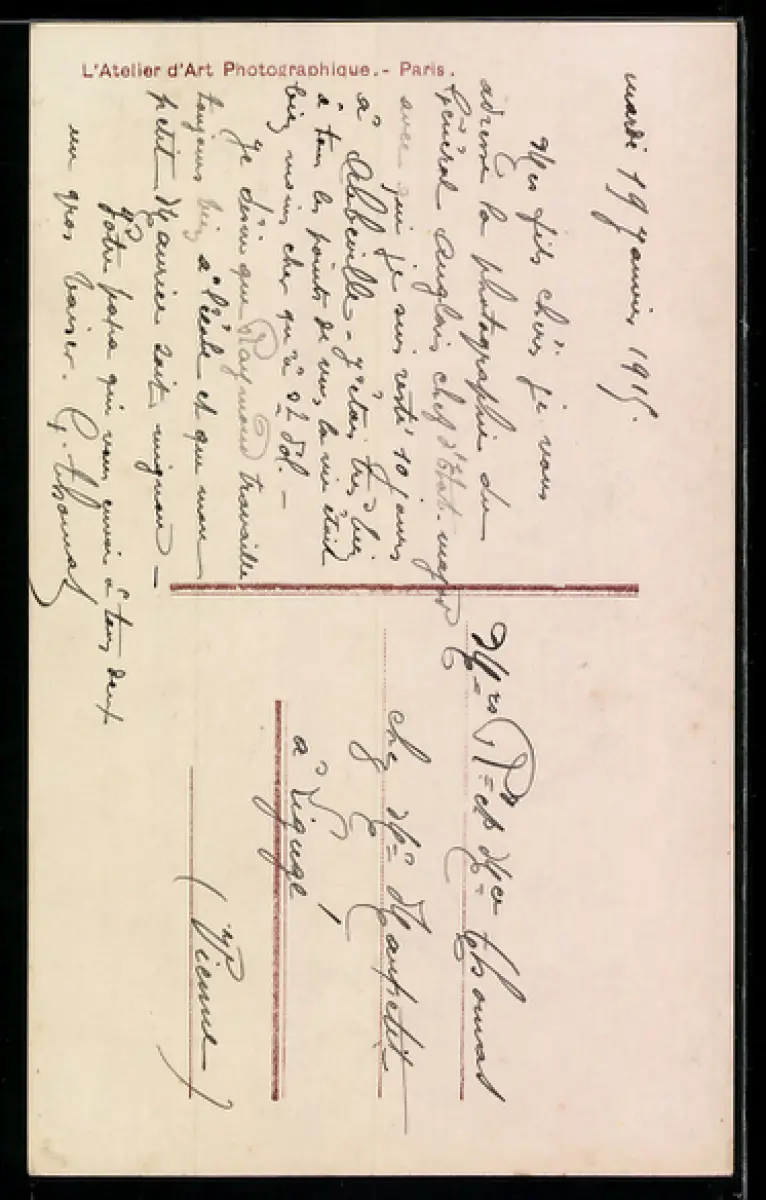 L'Atelier d'Art Photographique.- Paris.
mardi 19 janvier 1915.
Mes fils chéris je vous
adresse la photographie du
Général Anglais chef d'Etat-major
avec qui je suis resté 10 jours
à Abbeville - j'étais très bien
à tous les points de vue, la vie était
bien moins cher qu'à St Pol. -
Je désire que Raymond travaille
toujours bien à l'école et que mon
petit Maurice soit mignon -
Votre papa qui vous envoie à tous deux
un gros baiser. G. Thomas
Mrs Rd et Mce Thomas
chez Me Maupetit
à Ligugé
(Vienne)